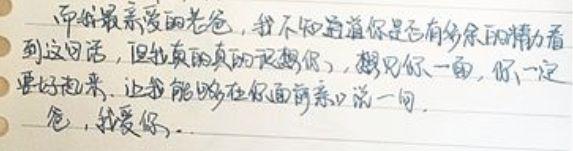 而我最亲爱的老爸，我不知道道你是否有多余的精力看
到这句话，但我真的真的很想你，想见你一面，你一定
要好起来，让我能够在你面前亲口说一句，
爸，我爱你。